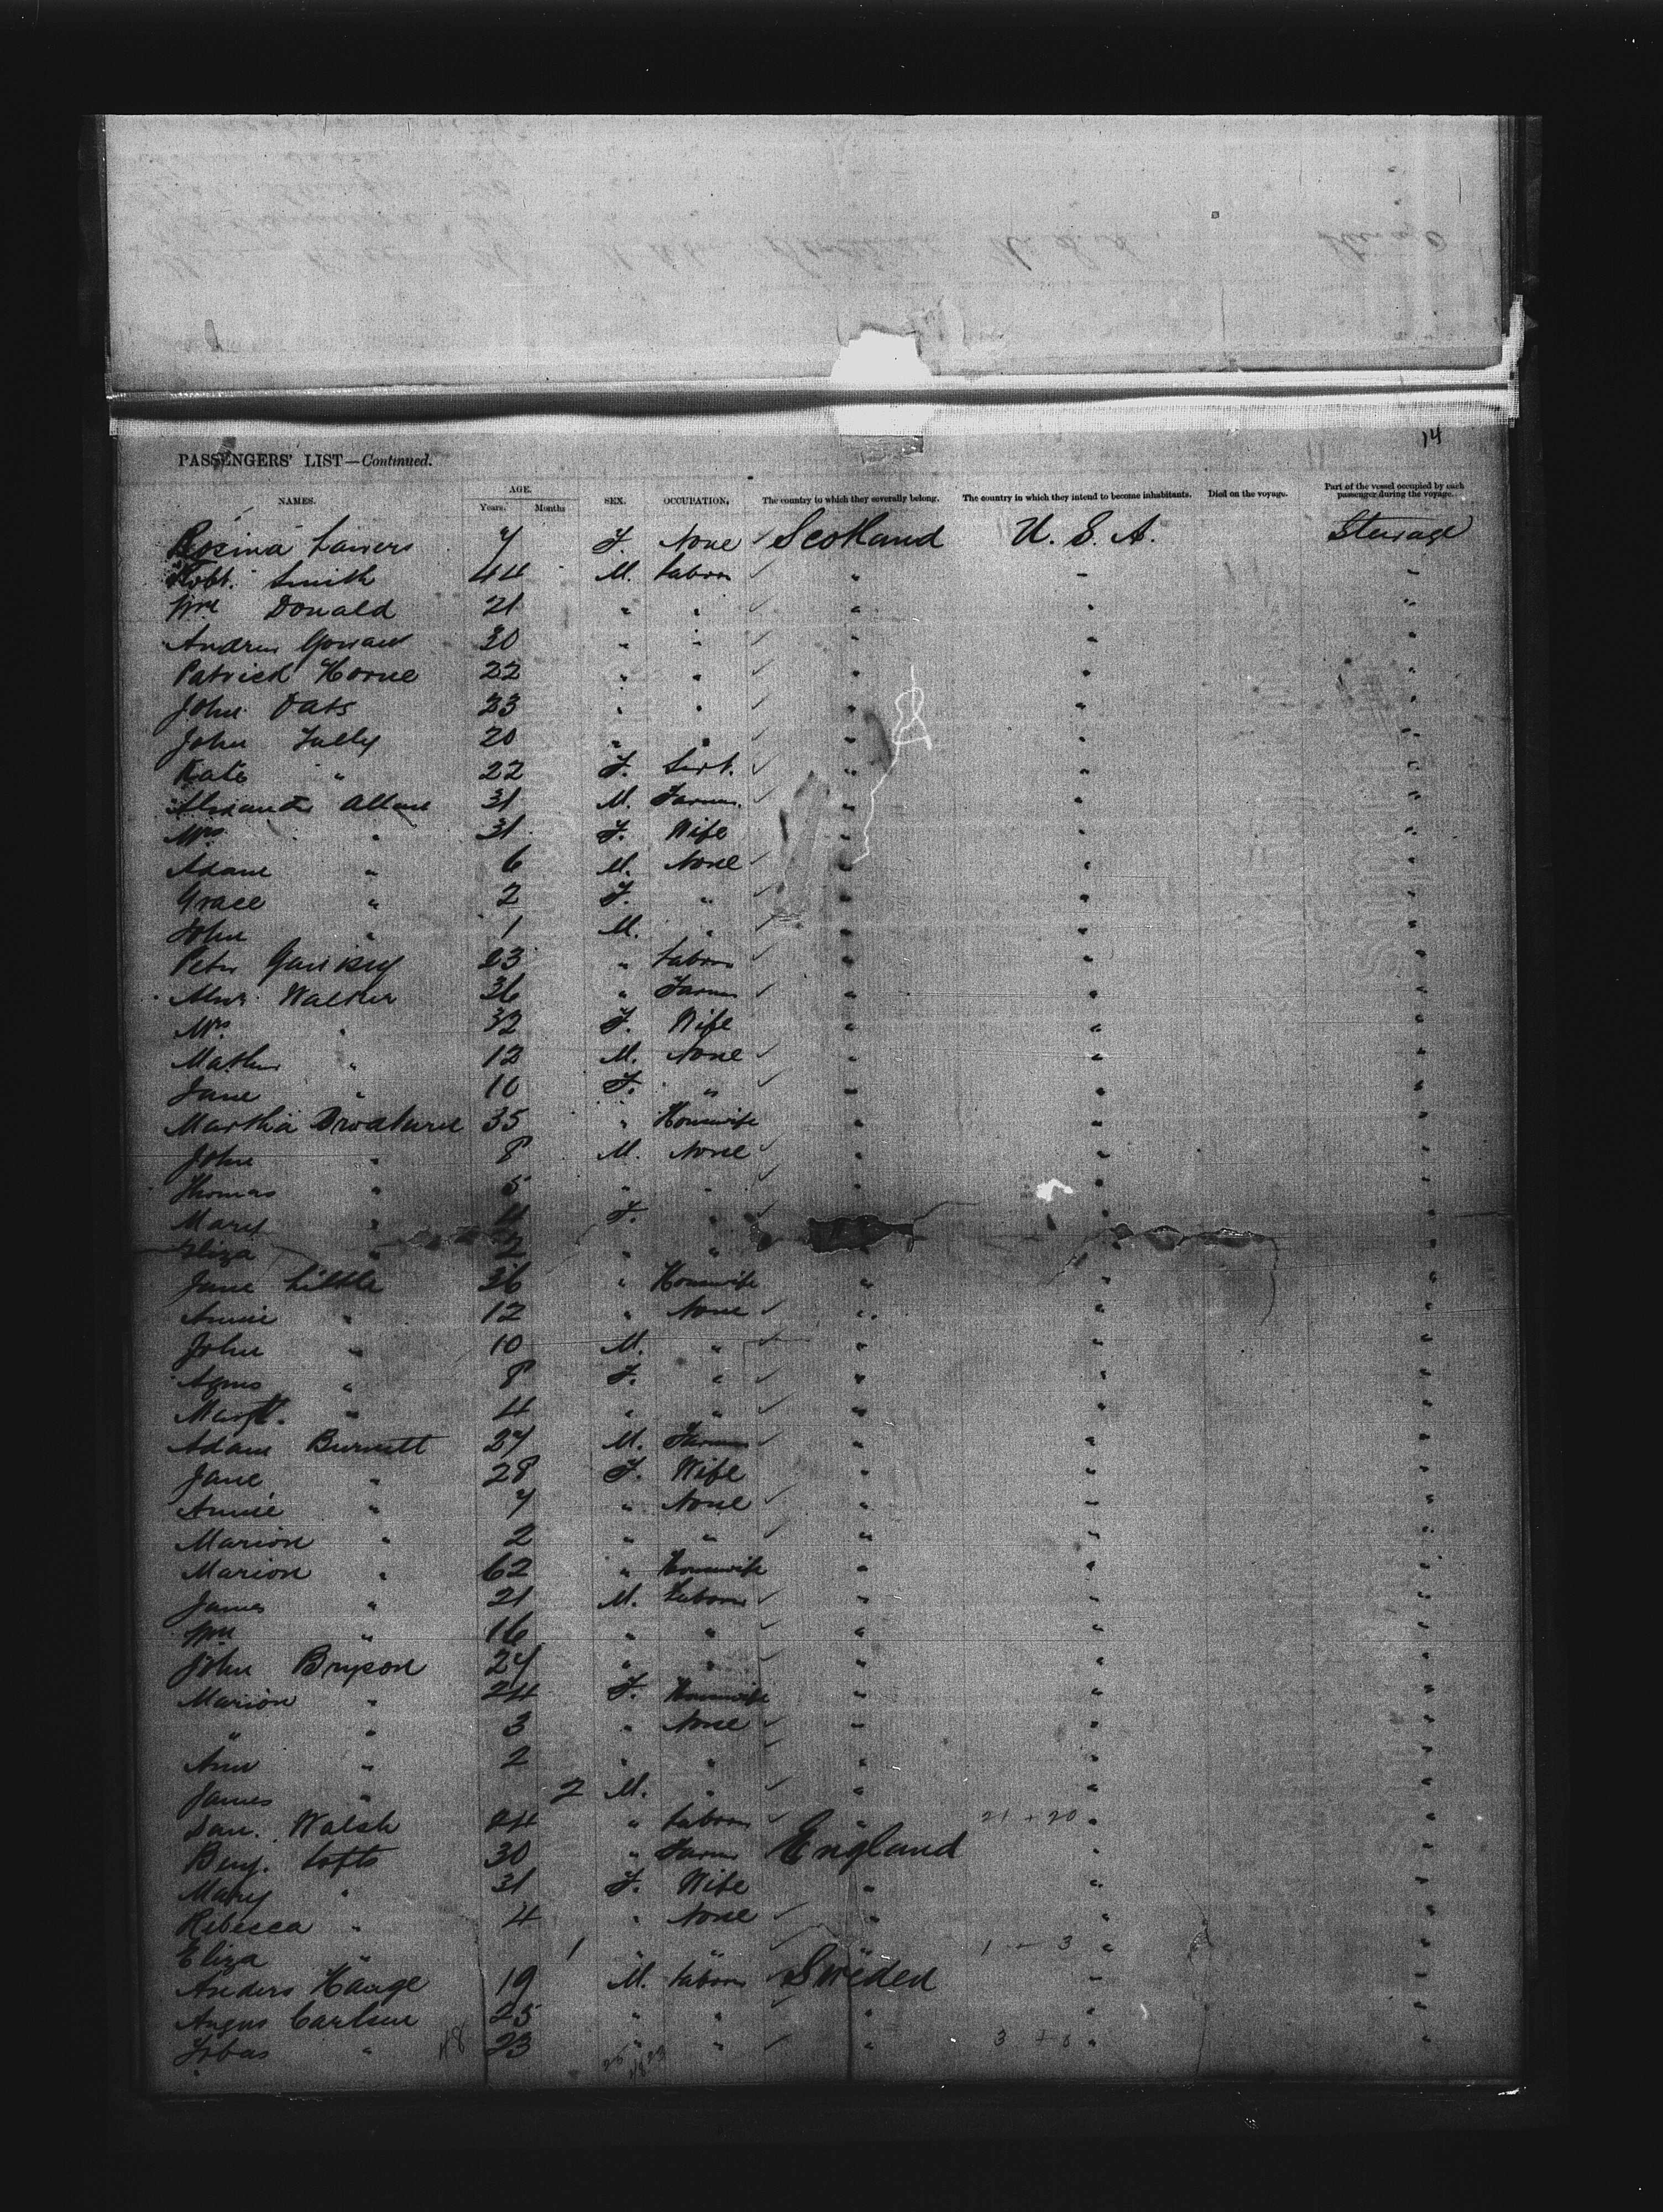 14
PASSENGERS' LIST—Continued.
NAMES. AGE. Years. Months SEX. OCCUPATION. The country to which they severally belong. The country in which they intend to become inhabitants. Died on the voyage. Part of the vessel occupied by each passenger during the voyage.
Rosina 7 F. None ✓ Scotland U. S. A. Steerage
Robt. Smith 44 M. Labor ✓ " " "
Wm Donald 21 " " ✓ " " "
Andrew 30 " " ✓ " " "
Patrick Horne 22 " " ✓ " " "
John Oats 23 " " ✓ " " "
John Tully 20 " " ✓ " " "
Kate " 22 F. Servt. ✓ " " "
Alexander Allan 31 M. Farmer ✓ " " "
Mrs " 31 F. Wife " " "
Adam " 6 M. None ✓ " " "
Grace " 2 F. " ✓ " " "
John " 1 M. " ✓ " " "
Peter 23 " Labor ✓ " " "
Walker 36 " Farmer ✓ " " "
Mrs " 32 F. Wife " " "
Mathew " 12 M. None ✓ " " "
Jane " 10 F. " ✓ " " "
Martha 35 " Housewife " " "
John " 8 M. None ✓ " " "
Thomas " 5 " " ✓ " " "
Mary " 4 F. " ✓ " "
Eliza " 2 " " " "
Jane Little 36 " Housewife " " "
Annie " 12 " None ✓ " " "
John " 10 M. " ✓ " " "
Agnes " 8 F. " ✓ " " "
Margt. " 4 " " ✓ " " "
Adam Burnett 27 M. Farmer ✓ " " "
Jane " 28 F. Wife " " "
Annie " 7 " None ✓ " " "
Marion " 2 " " ✓ " " "
Marion " 62 " Housewife " " "
James " 21 M. Labor ✓ " " "
Wm " 16 " " ✓ " " "
John Bryson 27 " " ✓ " " "
Marion " 24 F. Housewife " " "
" " 3 " None ✓ " " "
Ann " 2 " " ✓ " " "
James " 2 M. " ✓ " " "
Dan. Walsh 24 " Labor ✓ " 21 + 20 " "
Benj. Lofts 30 " Farmer England " "
Mary " 31 F. Wife " " "
Rebecca " 4 " None ✓ " " "
Eliza " 1 " " ✓ " 1 + 3 " "
Anders Hauge 19 M. Labor ✓ Sweden " "
Angus Carlson 25 " " ✓ " " "
" 48 23 " " ✓ " 3 + 0 " "
25 23
48